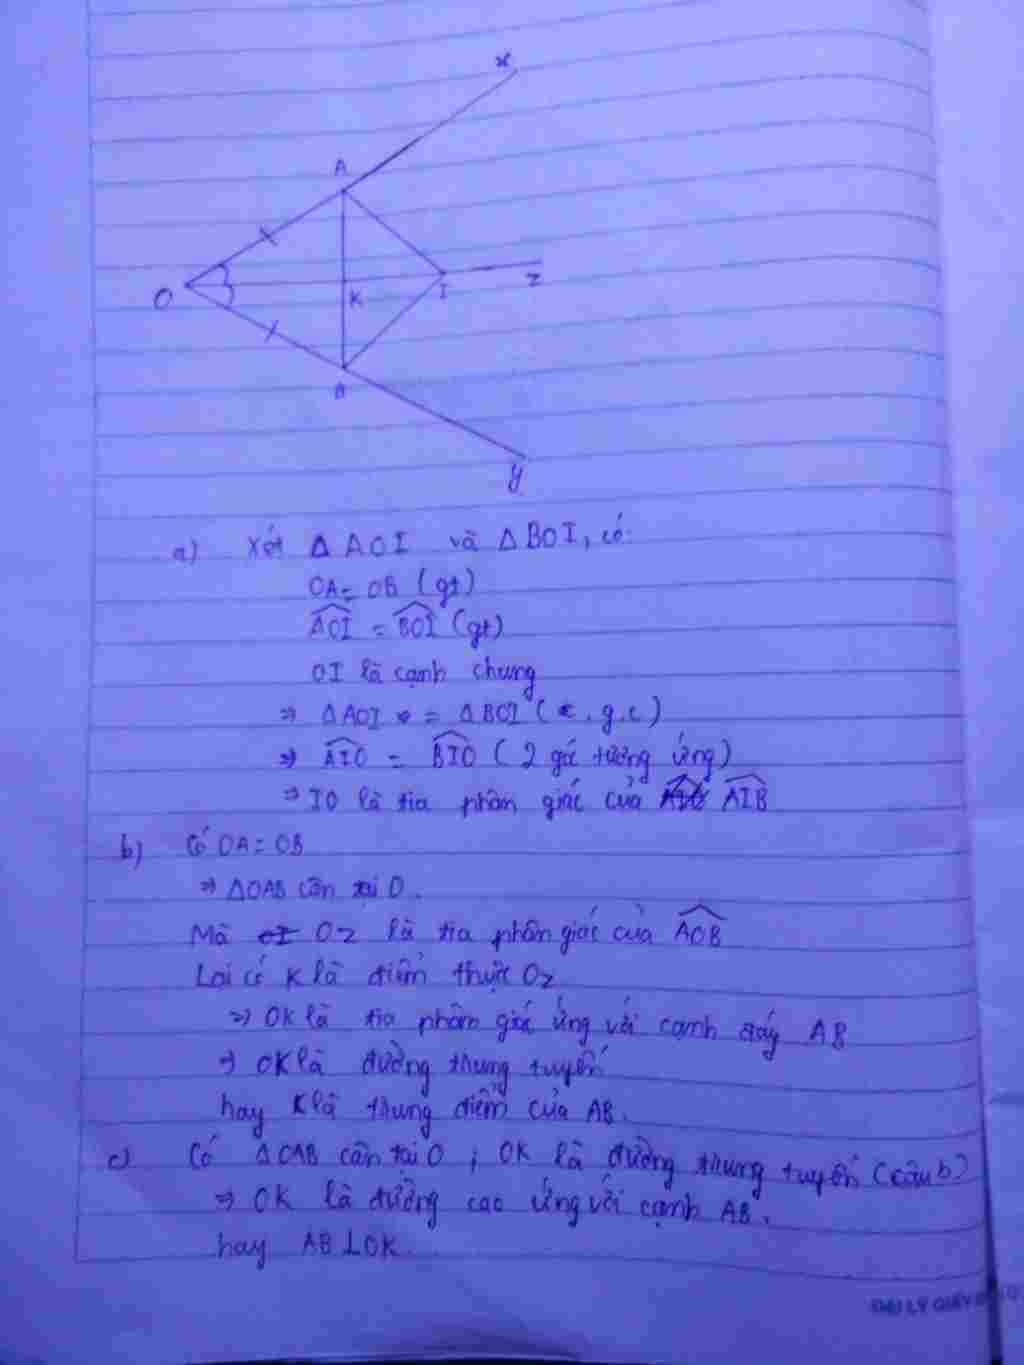 x
A
O
K
I
z
B
y
a) Xét Δ AOI và Δ BOI, có:
OA = OB (gt)
AOI = BOI (gt)
OI là cạnh chung
⇒ Δ AOI = Δ BOI (c.g.c)
⇒ AIO = BIO (2 góc tương ứng)
⇒ IO là tia phân giác của AIB
b) Có OA = OB
⇒ ΔOAB cân tại O.
Mà Oz là tia phân giác của AOB
Lại có K là điểm thuộc Oz
⇒ OK là tia phân giác ứng với cạnh đáy AB
⇒ OK là đường trung tuyến
hay K là trung điểm của AB.
c) Có ΔOAB cân tại O ; OK là đường trung tuyến (câu b)
⇒ OK là đường cao ứng với cạnh AB.
hay AB ⊥ OK.
ĐẠI LÝ GIẤY